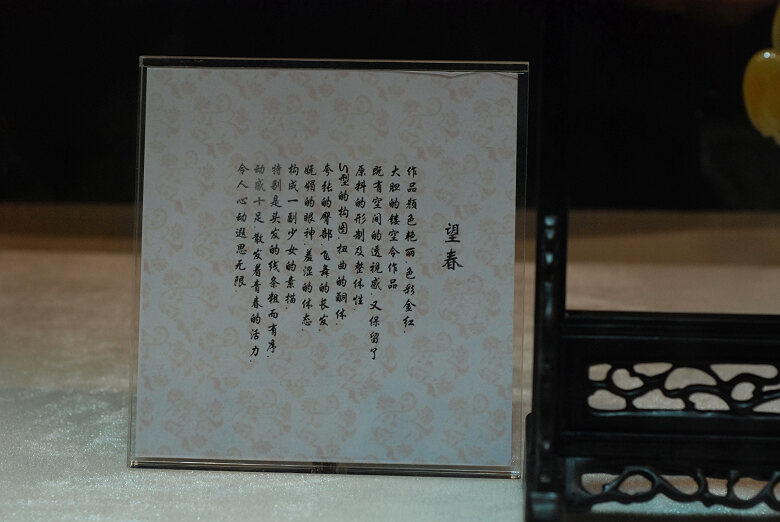 望春
作品颜色艳丽色彩金红.
大胆的镂空令作品
既有空间的透视感又保留了
原料的形制及整体性.
S型的构图.扭曲的酮体.
夸张的臀部.飞舞的长发.
妩媚的眼神.羞涩的体态.
构成一副少女的素描.
特别是头发的线条粗而有序.
动感十足.散发着青春的活力.
令人心动遐思无限.